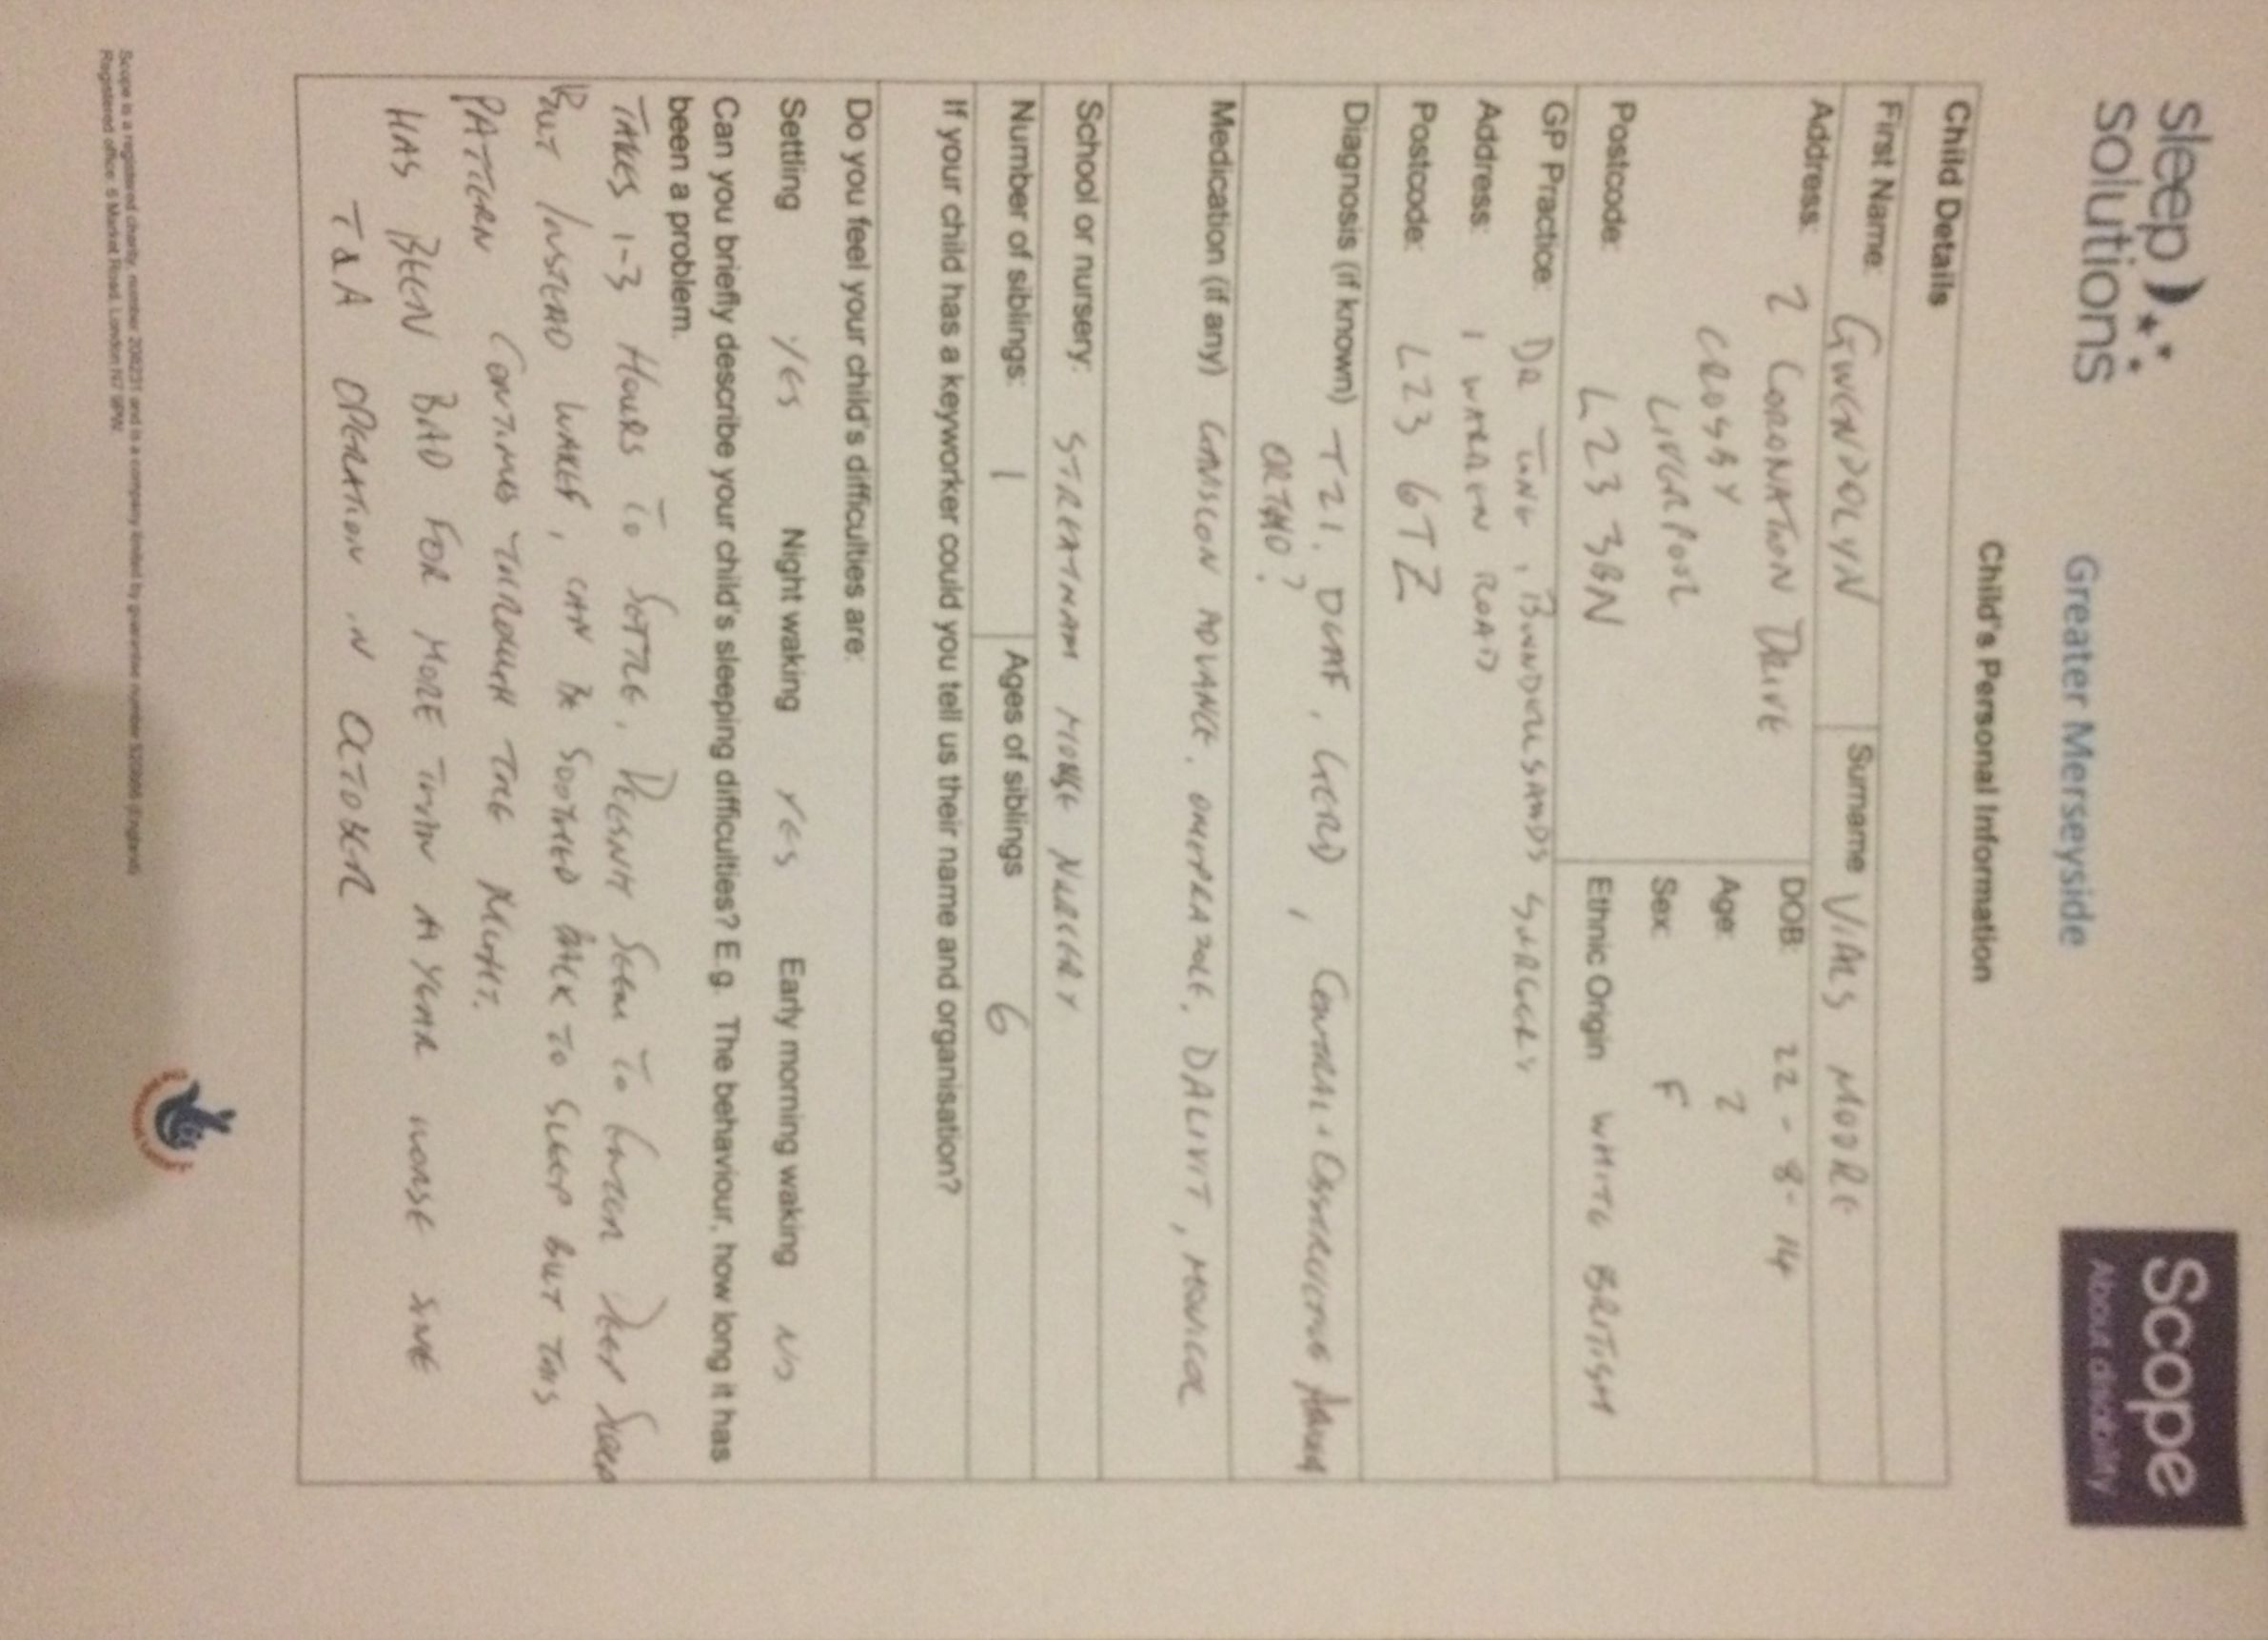 sleep
solutions
Greater Merseyside
Scope
About disability
Child's Personal Information
Child Details
First Name: GWENDOLYN Surname VIALS MOORE
Address: 2 CORONATION DRIVE DOB: 22-8-14
CROSBY Age: 2
LIVERPOOL Sex: F
Postcode: L23 3BN Ethnic Origin WHITE BRITISH
GP Practice: DR TONG, BLUNDELLSANDS SURGERY
Address: 1 WARREN ROAD
Postcode: L23 6TZ
Diagnosis (if known) T21, DEAF, GERD, CENTRAL + OBSTRUCTIVE
ORTHO?
Medication (if any) GAVISCON ADVANCE, OMEPRAZOLE, DALIVIT, MOVICOL
School or nursery: STREATHAM HOUSE NURSERY
Number of siblings: 1 Ages of siblings 6
If your child has a keyworker could you tell us their name and organisation?
Do you feel your child's difficulties are:
Settling YES Night waking YES Early morning waking NO
Can you briefly describe your child's sleeping difficulties? E.g. The behaviour, how long it has
been a problem.
TAKES 1-3 HOURS TO SETTLE, DOESN'T SEEM TO ENTER DEEP SLEEP
BUT INSTEAD WAKES, CAN BE SOOTHED BACK TO SLEEP BUT THIS
PATTERN CONTINUES THROUGH THE NIGHT.
HAS BEEN BAD FOR MORE THAN A YEAR WORSE SINCE
T&A OPERATION IN OCTOBER
Scope is a registered charity, number 208231 and is a company limited by guarantee number 520866 (England)
Registered office: 6 Market Road, London N7 9PW.